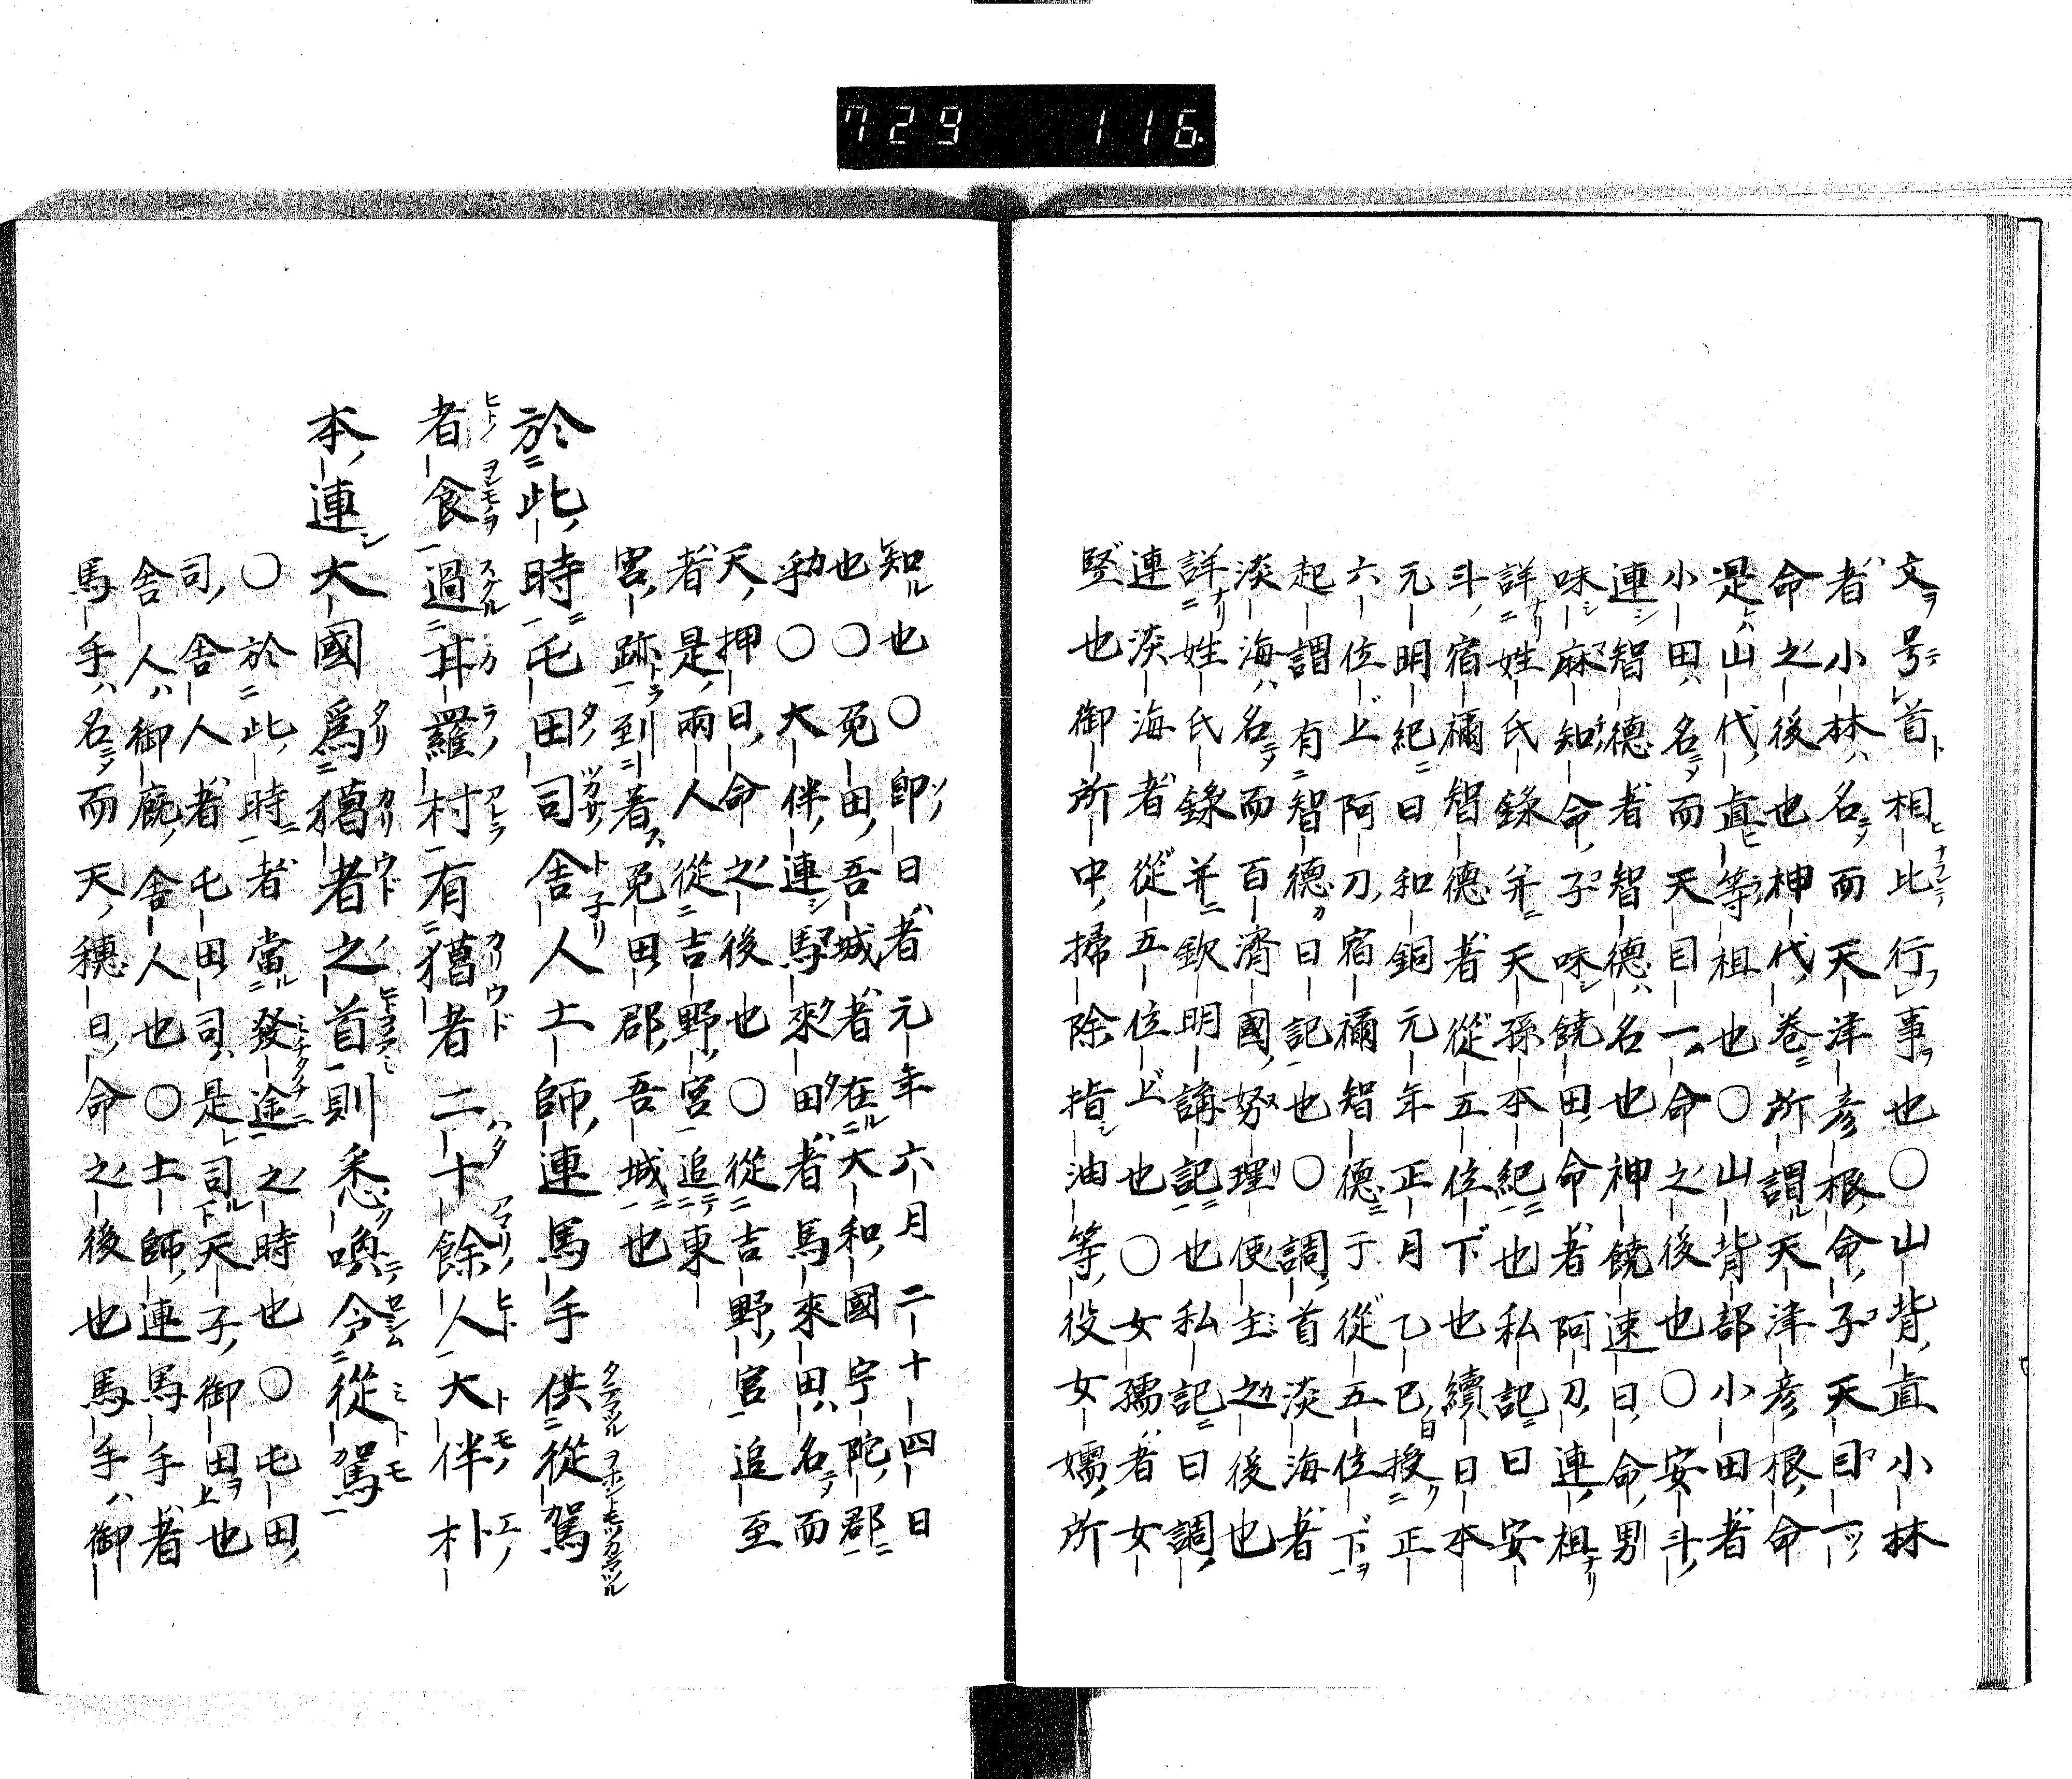 729 116
文号首相比行事也○山背直小林
者小林名而天津彦根命子天目一
命之後也神代巻所謂天津彦根命
是山代直等祖也○山背部小田者
小田名而天目一命之後也○安斗
連智徳者智徳名也神饒速日命男
味麻知命子味饒田命者阿刀連祖
詳姓氏錄并天孫本紀也私記曰安
斗宿禰智徳者從五位下也續日本
元明紀曰和銅元年正月乙巳授正
六位上阿刀宿禰智徳于從五位下
起謂有智徳日記也○調首淡海者
淡海名而百濟國努理使主之後也
詳姓氏錄并欽明講記也私記曰調
連淡海者從五位上也○女孺者女
竪也御所中掃除指油等役女嬬所
知也○即日者元年六月二十四日
也○菟田吾城者在大和國宇陀郡
乎○大伴連馬來田者馬來田名而
天押日命之後也○從吉野宮追至
者是兩人從吉野宮追東
宮跡到着菟田郡吾城也
於此時屯田司舎人土師連馬手供從駕
者食過甘羅村有獦者二十餘人大伴朴
本連大國爲獦者之首則悉喚令從駕
○於此時者當發途之時也○屯田
司舎人者屯田司是司天子御田也
舎人御廐舎人也○土師連馬手者
馬手名而天穗日命之後也馬手御